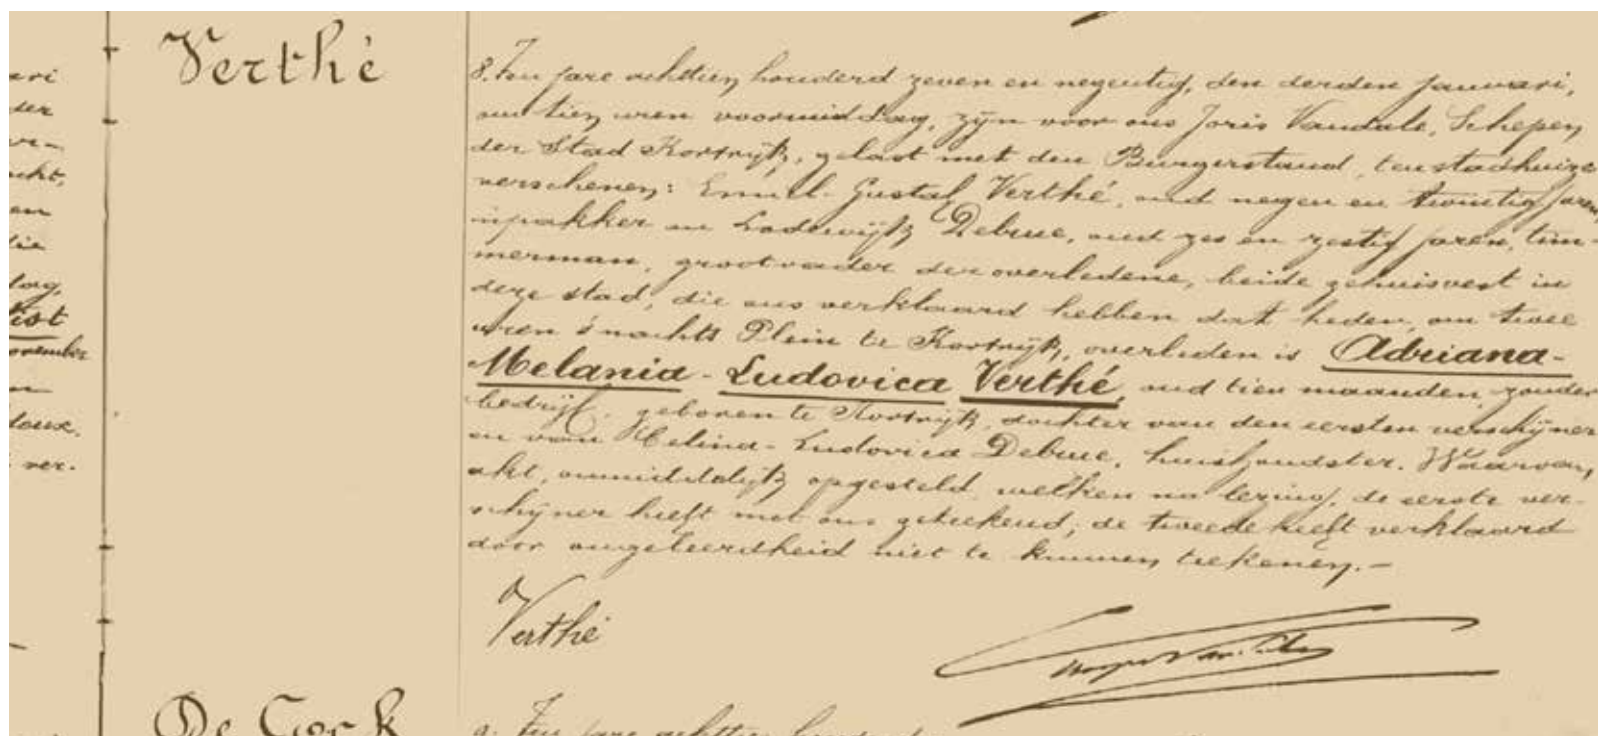 Verthé
8. Ten jare achttien honderd zeven en negentig, den derden Januari,
om tien uren voormiddag, zijn voor ons Joris Vandale, Schepen
der Stad Kortrijk, gelast met den Burgerstand, ten stadhuize
verschenen: Emiel-Gustaf Verthé, oud negen en twintig jaren,
inpakker en Lodewijk Debrue, oud zes en zestig jaren, tim-
merman, grootvader der overledene, beide gehuisvest in
deze stad, die ons verklaard hebben dat heden, om twee
uren 's nachts Plein te Kortrijk, overleden is Adriana-
Melania-Ludovica Verthé, oud tien maanden, zonder
bedrijf, geboren te Kortrijk, dochter van den eersten verschijner
en van Melina-Ludovica Debrue, huishoudster. Waarvan,
akt, onmiddelijk opgesteld, welken na lezing, de eerste ver-
schijner heeft met ons geteekend, de tweede heeft verklaard
door ongeleerdheid niet te kunnen teekenen.-
Verthé
De Cock
9. Ten jare achttien
ari
der
cht,
en
die
dag,
ist
ovember
n
ver-